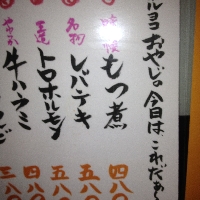 ルヨコおやじの今日は、これだぁ〜
もつ煮 四八〇
名物 レバテキ 五八〇
トロホルモン 五八〇
牛ハラミ 四八〇
三八〇